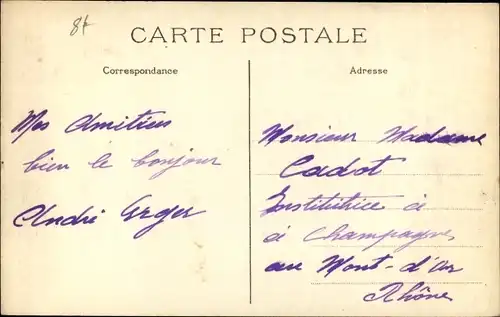 CARTE POSTALE
Correspondance
Adresse
Mes Amitiés
bien le bonjour
André
Monsieur Madame
Cadot
Institutrice à
à Champagne
au Mont-d'or
Rhône